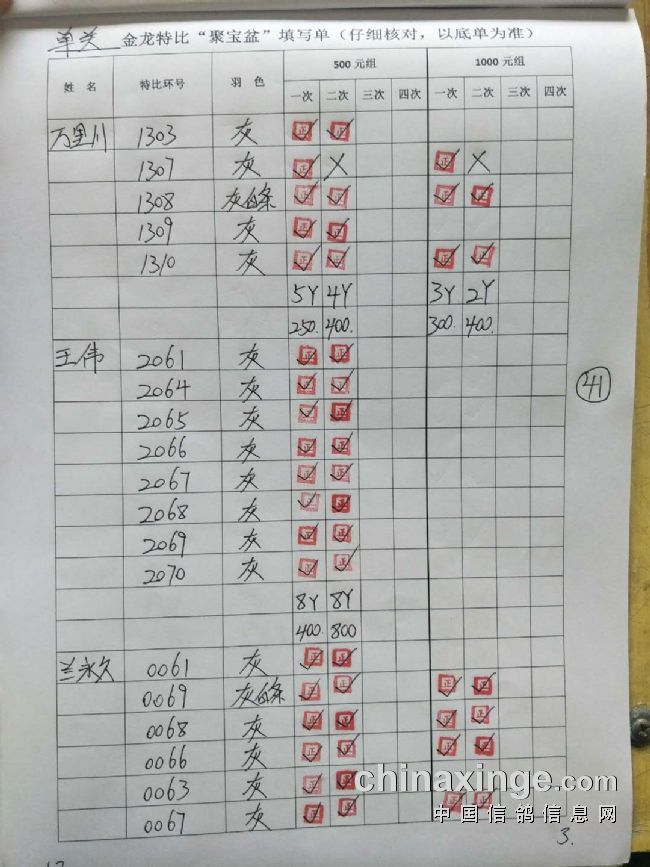 单关 金龙特比“聚宝盆”填写单（仔细核对，以底单为准）
姓 名 特比环号 羽 色 500 元组 1000 元组
一次 二次 三次 四次 一次 二次 三次 四次
万里川 1303 灰 正 正
1307 灰 正 X 正 X
1308 灰白条 正 正 正 正
1309 灰 正 正
1310 灰 正 正 正 正
5Y 4Y 3Y 2Y
250. 400. 300. 400.
王伟 2061 灰 正 正
2064 灰 正 正
41
2065 灰 正 正
2066 灰 正 正
2067 灰 正 正
2068 灰 正 正
2069 灰 正 正
2070 灰 正 正
8Y 8Y
400. 800
兰永久 0061 灰 正 正
0069 灰白条 正 正 正 正
0068 灰 正 正 正 正
0066 灰 正 正 正 正
0063 灰 正 正
0067 灰 正 正 正 正
chinaxinge.com
中国信鸽信息网
3.